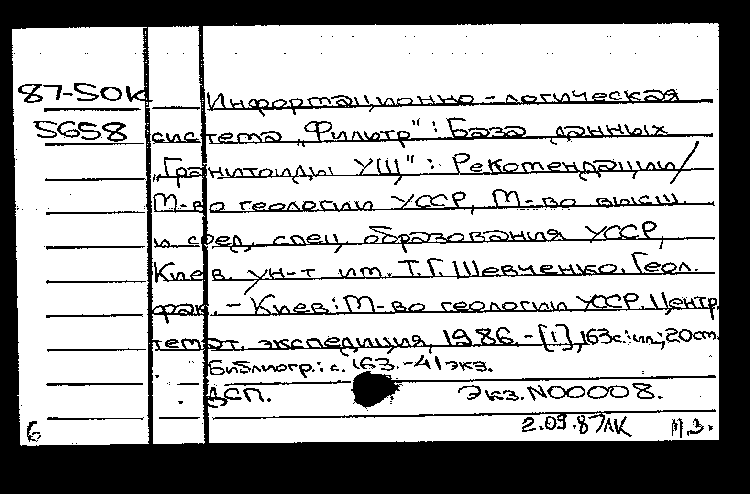 87-50К Информационно-логическая
5658 система „Фильтр": База данных
„Гранитоиды УЩ": Рекомендации/
М-во геологии УССР, М-во высш.
и сред. спец. образования УССР,
Киев. ун-т им. Т.Г. Шевченко. Геол.
фак. - Киев: М-во геологии УССР. Центр.
темат. экспедиция, 1986. - [1], 163с.: ил.; 20см.
Библиогр.: с. 163. - 41 экз.
ДСП. Экз. N00008.
2.09.87ЛК М.З.
6